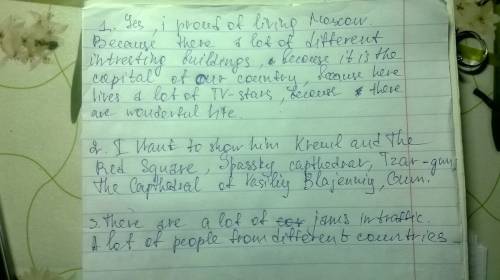 1. Yes, i proud of living Moscow.
Because there a lot of different
intresting buildings, because it is the
capital of our country, because here
lives a lot of TV-stars, because there
are wonderful life.
2. I want to show him Kreml and the
Red Square, Spassky capthedral, Tzar-gun,
the Capthedral of Vasiliy Blajenniy, Gum.
3. There are a lot of jams in traffic.
A lot of people from different countries